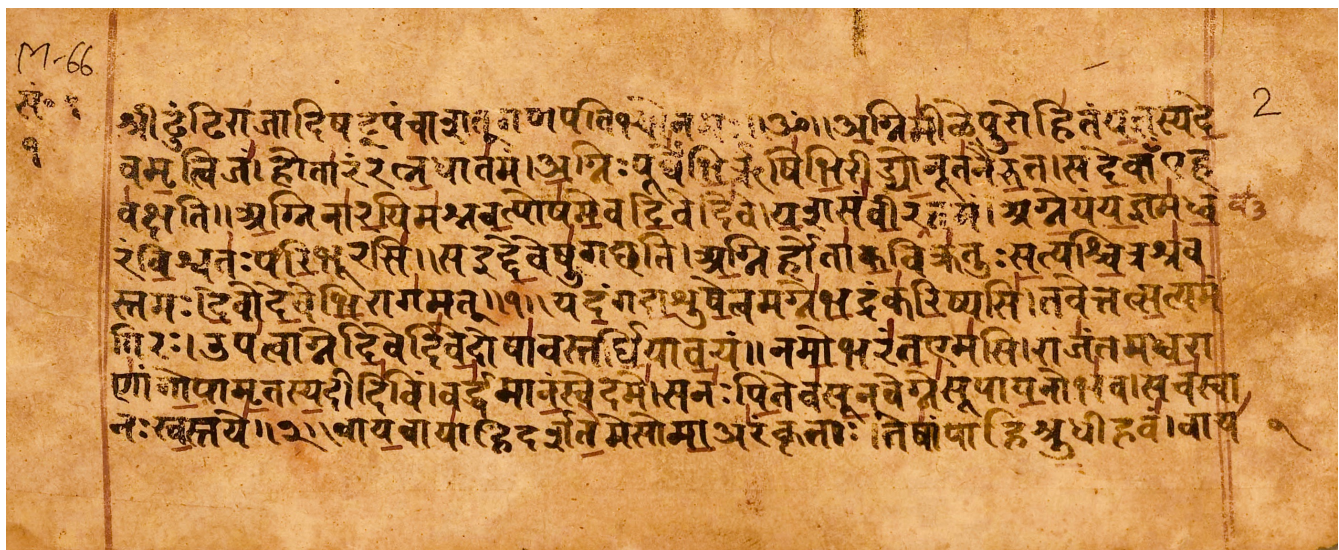 M-66
2
सं॰ १
१
श्रीढुंढिराजादिषट्पंचाशत् गणपतिभ्योनमः॥ॐ॥अग्निमीळेपुरोहितंयज्ञस्यदे
वमृत्विजं।होतारंरत्नधातमं।अग्निःपूर्वेभिर्ऋषिभिरीड्योनूतनैरुत।सदेवाँएह
वक्षति॥अग्निनारयिमश्नवत्पोषमेवदिवेदिवे।यशसंवीरवत्तमं।अग्नेयंयज्ञमध्व
रंविश्वतःपरिभूरसि॥सइद्देवेषुगछति।अग्निर्होताकविक्रतुःसत्यश्चित्रश्रव
स्तमः।देवोदेवेभिरागमत्॥१॥यदंगदाशुषेत्वमग्नेभद्रंकरिष्यसि।तवेत्तत्सत्यमं
गिरः।उपत्वाग्नेदिवेदिवेदोषावस्तर्द्धियावयं॥नमोभरंतएमसि।राजंतमध्वरा
णांगोपामृतस्यदीदिविं।वर्द्धमानंस्वेदमे।सनःपितेवसूनवेग्नेसूपायनोभव।सचस्वा
नःस्वस्तये॥२॥वायवायाहिदर्शतेमेसोमाअरंकृताः।तेषांपाहिश्रुधीहवं।वाय १